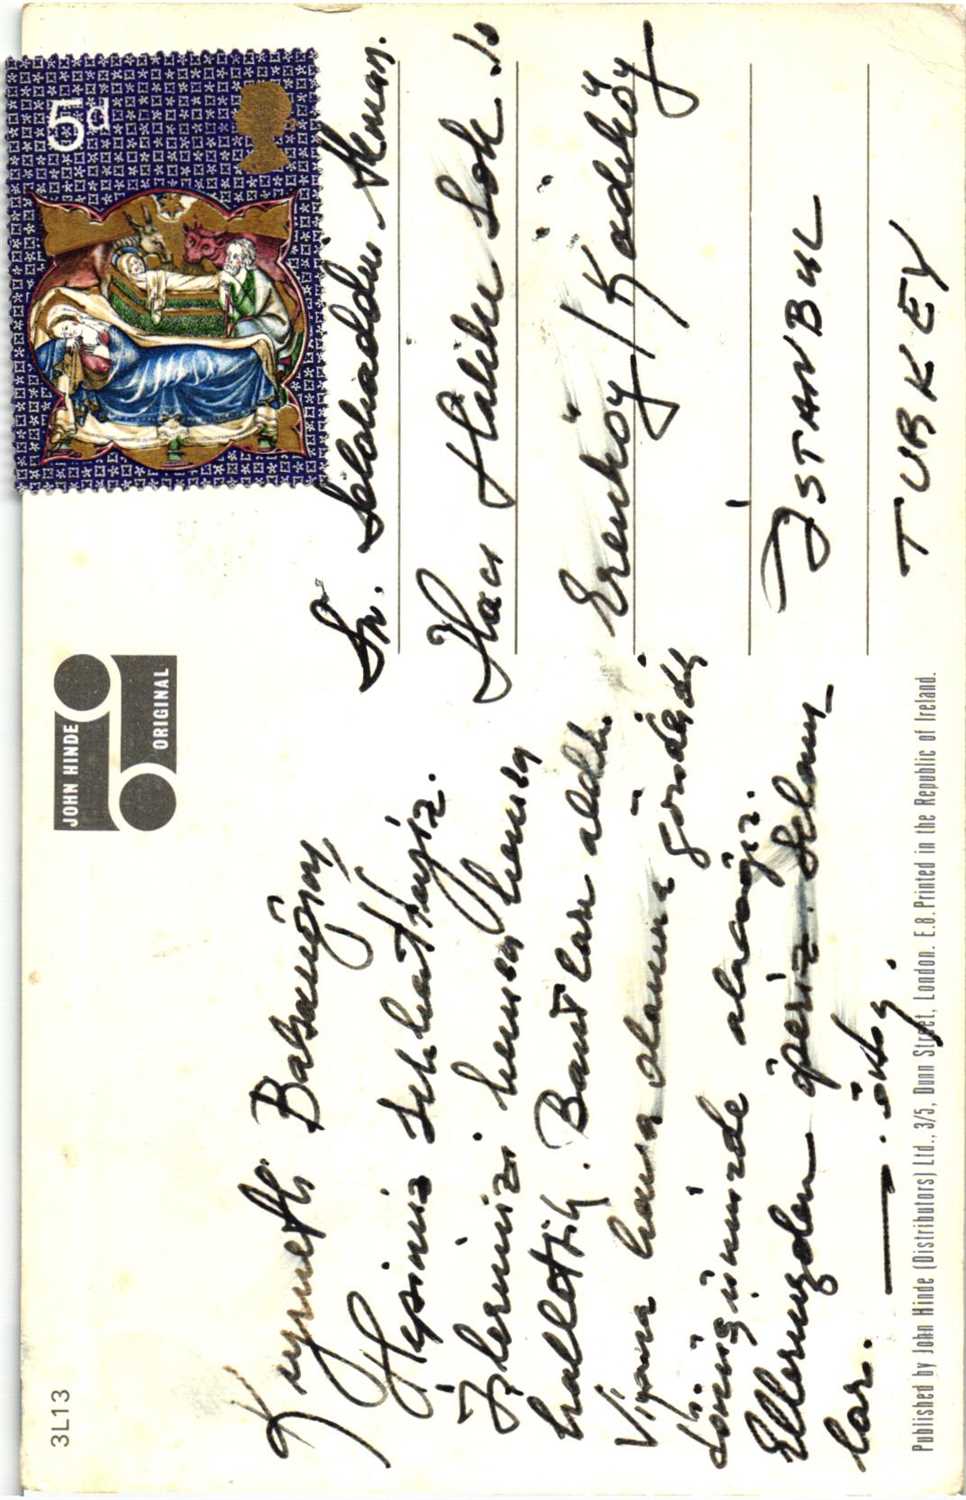 3L13
JOHN HINDE
ORIGINAL
5d
Kıymetli Babacığım
Hepimiz sıhhatteyiz.
İşlerimizi hemen hemen
hallettik. Bantları aldık.
Viyana havaalanına gönderdi
dönüşümüzde alacağız.
Ellerinizden öperiz. Selam
lar.
Sn. Selahaddin Akman.
Hacı Hakkı Sok.
Erenköy / Kadıköy
İSTANBUL
TURKEY
Published by John Hinde (Distributors) Ltd., 3/5, Dunn Street, London. E.8. Printed in the Republic of Ireland.